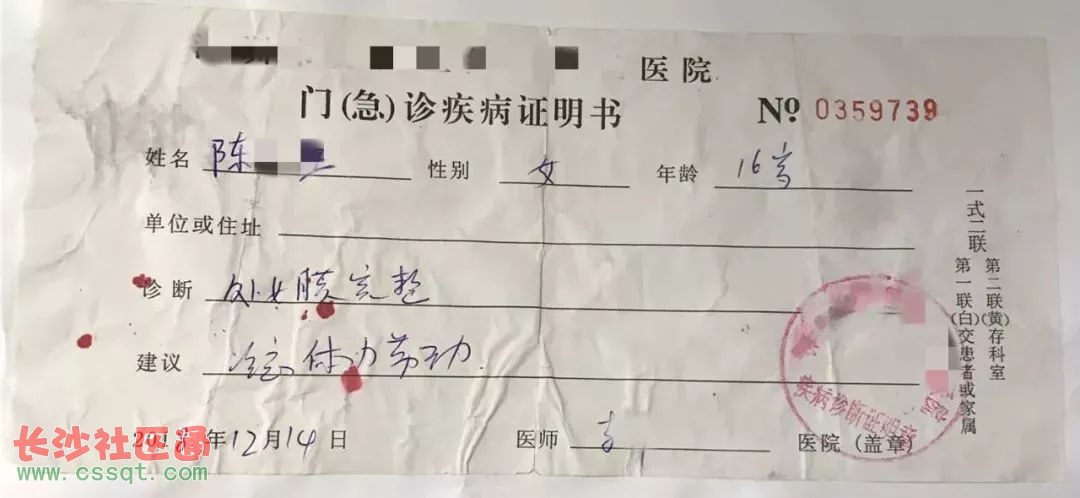 医院
门(急)诊疾病证明书
№ 0359739
姓名 陈 性别 女 年龄 16岁
单位或住址
诊断 处女膜完整
建议 体力劳动
年12月14日 医师 医院(盖章)
疾病诊断证明章
一式二联
第一联(白)交患者或家属
第二联(黄)存科室
长沙社区通
www.cssqt.com